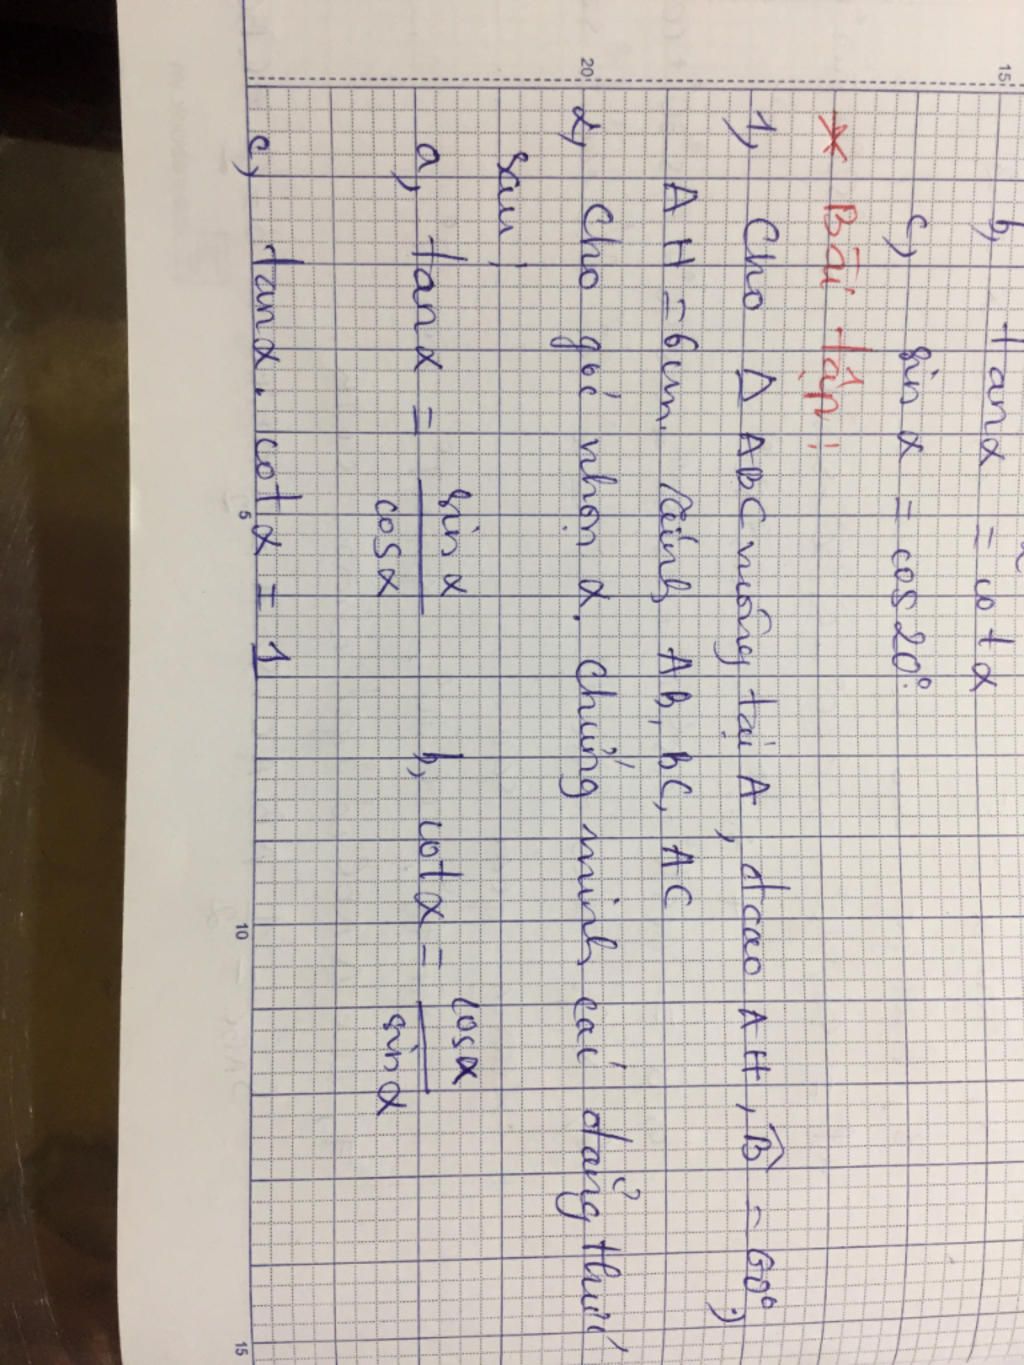 b, tanα = cotα
c, sin α = cos 20°.
* Bài tập:
1, Cho Δ ABC vuông tại A, đcao AH, B̂ = 60°;
AH = 6cm. Tính AB, BC, AC
2, Cho góc nhọn α. Chứng minh các đẳng thức
sau:
a, tanα = sin α / cosα
b, cotα = cosα / sin α
c, tanα. cotα = 1
15
20
5
10
15